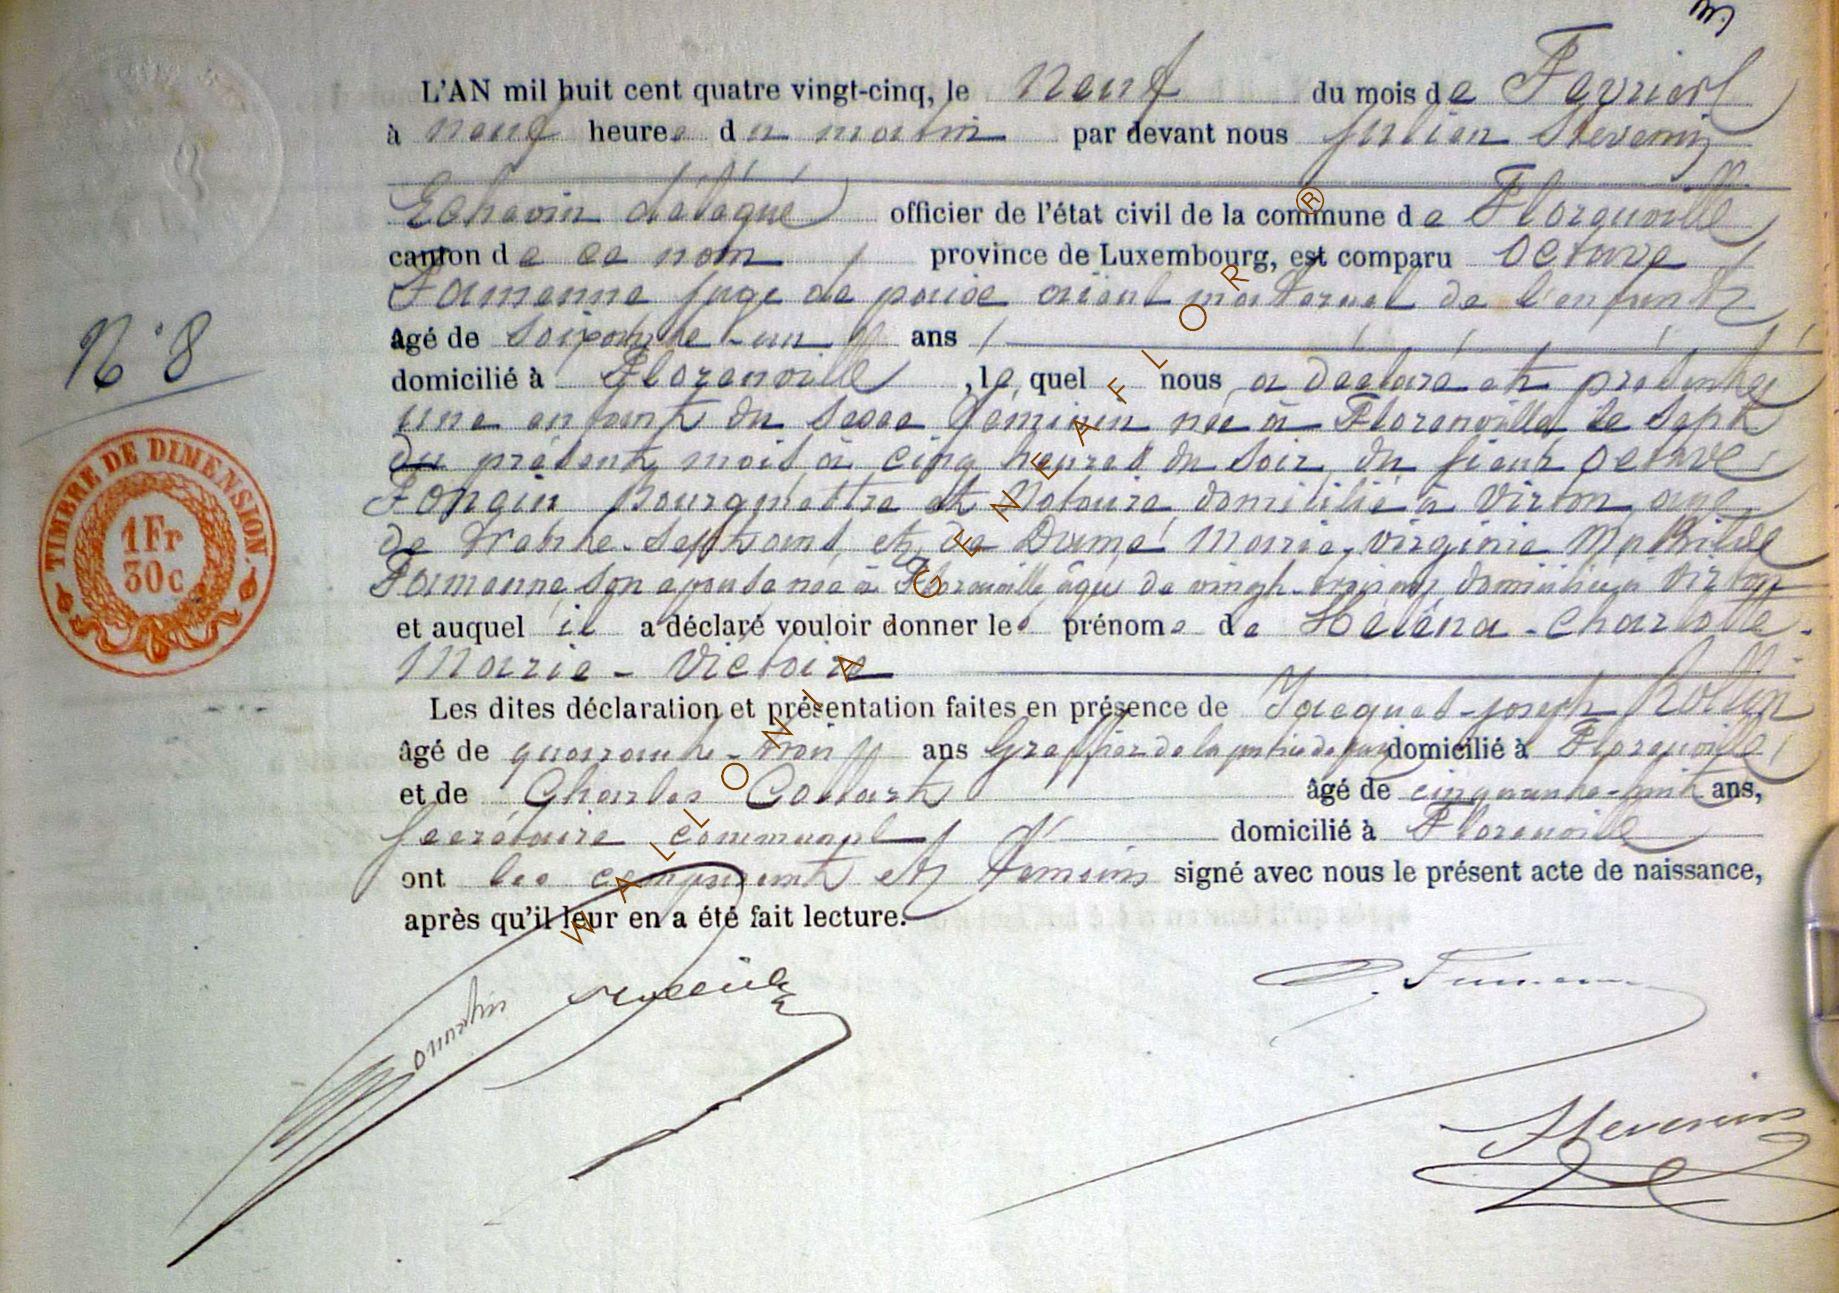 L'AN mil huit cent quatre vingt-cinq, le neuf du mois de Février
à neuf heure. du matin par devant nous Julien Stevenin
Echevin délégué officier de l'état civil de la commune de Florenville
canton de ce nom province de Luxembourg, est comparu Octave
Famenne juge de paix aieul maternel de l'enfant
âgé de soixante-un ans
domicilié à Florenville, lequel nous a déclaré et présenté
une enfant du sexe féminin née à Florenville le sept
du présent mois à cinq heures du soir, du sieur Octave
Foncin Bourgmestre et Notaire domicilié à Virton age
de trente-sept ans et de Dame Marie Virginie Mathilde
Famenne, son epouse née à Florenville âgée de vingt-trois ans domiciliée à Virton
et auquel il a déclaré vouloir donner les prénoms de Héléna-Charlotte-
Marie-Victoire
Les dites déclaration et présentation faites en présence de Jacques-joseph Rollin
âgé de quarante-trois ans Greffier de la justice de paix domicilié à Florenville
et de Charles Collart âgé de cinquante-huit ans,
secrétaire communal domicilié à Florenville
ont les comparant et témoins signé avec nous le présent acte de naissance,
après qu'il leur en a été fait lecture.
O. Famenne
Stevenin
N° 8
TIMBRE DE DIMENSION.
1Fr
30c
WALLONIA GENEAFLOR ®